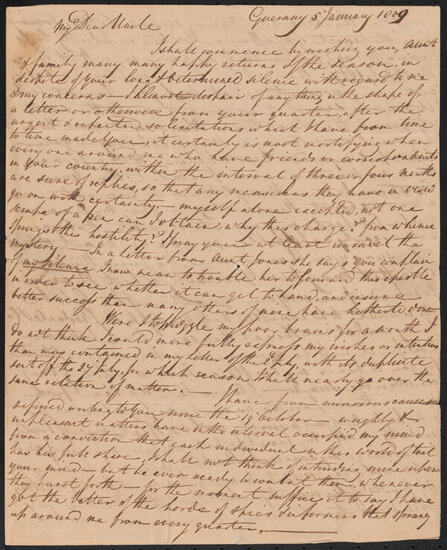 Guernsey 5 January 1809
My Dear Uncle
I shall commence by wishing you, Aunt
& family many many happy returns of the season, in
despite of your long & determined silence with regard to me
& my concerns — I almost despair of anything in the shape of
a letter or otherwise from your quarter, after the
urgent & repeated solicitations which I have from time
to time made you, it certainly is most mortifying when
every one around me who have friends or correspondents
in your country, within the interval of three or four months
are sure of replies, so that any measures they have in view
go on with certainty — myself alone excepted, not one
scrape of a pen can I obtain, why this change? from whence
springs this hostility? I pray you at least unravel the
mystery. — In a letter from Aunt Jones she says you complain
of my silence I now mean to trouble her to forward this epistle
in order to see whether it can get to hand, and insure
better success than many others of mine have hitherto done
Were I to puzzle my poor brains for a month I
do not think I could more fully express my wishes or intentions
than was contained in my letter of the July with its duplicate
sent off the 29 July, for which reason I shall nearly go over the
same relation of matter. — I have from numerous causes
refrained writing to you since the 19 October — weighty &
unpleasant matters have in the interval occupied my mind
from a conviction that each individual in this world of toil
has his full share, I shall not think of intruding mine upon
your mind — but be ever ready to combat them, whenever
they burst forth — for the moment suffice it to say I have
got the better of the horde of spies & informers that sprang
up around me from every quarter. —